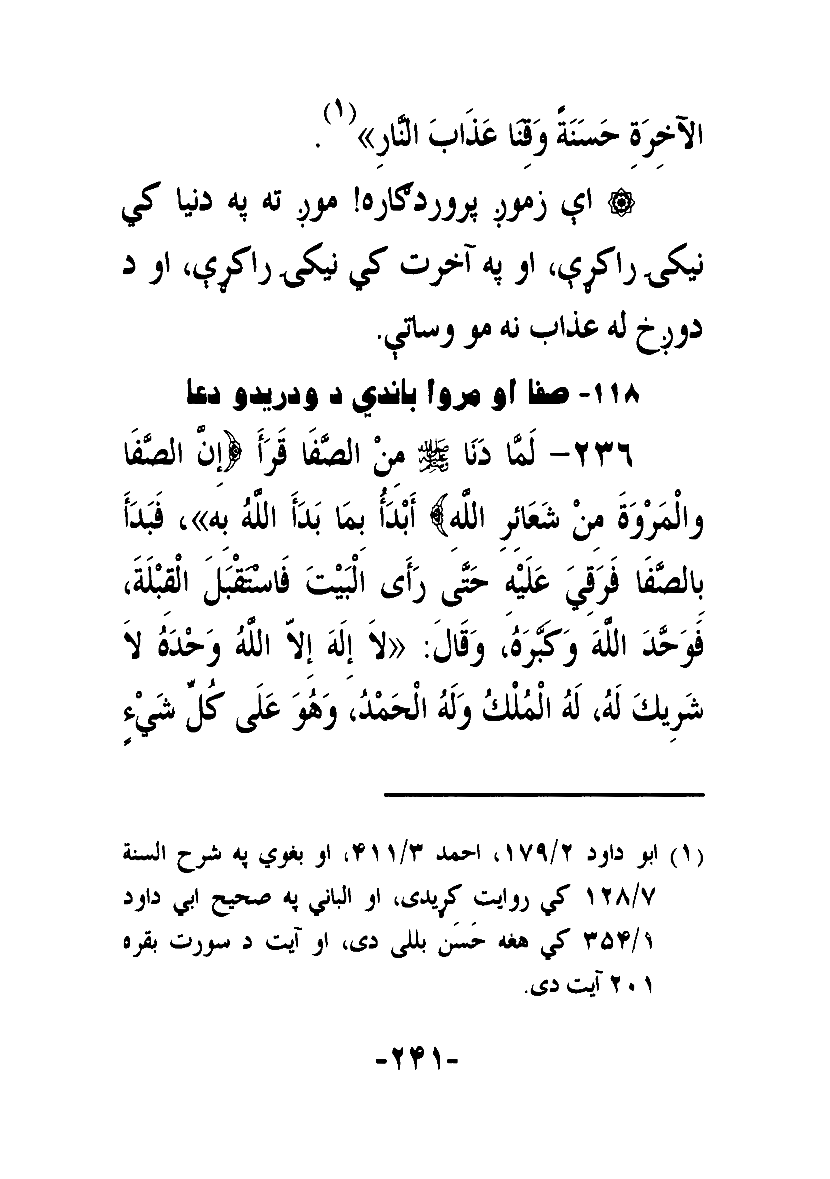 الآخِرَةِ حَسَنَةً وَقِنَا عَذَابَ النَّارِ»(١).
۞ اې زموږ پروردګاره! موږ ته په دنيا کي
نيکۍ راکړې، او په آخرت کي نيکۍ راکړې، او د
دوږخ له عذاب نه مو وساتې.
١١٨- صفا او مروا باندي د ودريدو دعا
٢٣٦- لَمَّا دَنَا ﷺ مِنْ الصَّفَا قَرَأَ ﴿إِنَّ الصَّفَا
والْمَرْوَةَ مِنْ شَعَائِرِ اللَّهِ﴾ أَبْدَأُ بِمَا بَدَأَ اللَّهُ بِهِ»، فَبَدَأَ
بِالصَّفَا فَرَقِيَ عَلَيْهِ حَتَّى رَأَى الْبَيْتَ فَاسْتَقْبَلَ الْقِبْلَةَ،
فَوَحَّدَ اللَّهَ وَكَبَّرَهُ، وَقَالَ: «لاَ إِلَهَ إِلاّ اللَّهُ وَحْدَهُ لاَ
شَرِيكَ لَهُ، لَهُ الْمُلْكُ وَلَهُ الْحَمْدُ، وَهُوَ عَلَى كُلِّ شَيْءٍ
(١) ابو داود ١٧٩/٢، احمد ۴١١/٣، او بغوي په شرح السنة
١٢٨/٧ کي روايت کړيدى، او الباني په صحيح ابي داود
٣۵۴/١ کي هغه حَسَن بللى دى، او آيت د سورت بقره
٢٠١ آيت دى.
-٢۴١-